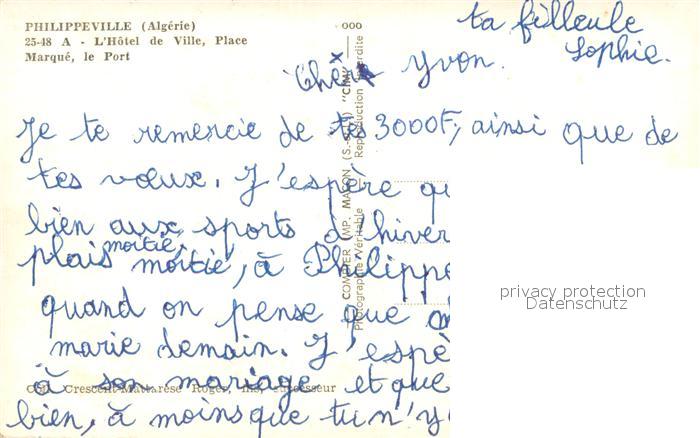 PHILIPPEVILLE (Algérie)
25-48 A - L'Hôtel de Ville, Place
Marqué, le Port
ta filleule
Sophie.
Cher Yvon.
Je te remercie de tes 3000F, ainsi que de
tes vœux. J'espère qu
bien aux sports d'hiver
moitié,
plais moitié, à Philippe
quand on pense que
marie demain. J'espè
à son mariage et que
bien, à moins que tu n'y
COMBIER IMP. MACON "CIM"
Photographie Véritable Reproduction Interdite
Crescent-Mattarèse Roger, successeur
privacy protection
Datenschutz